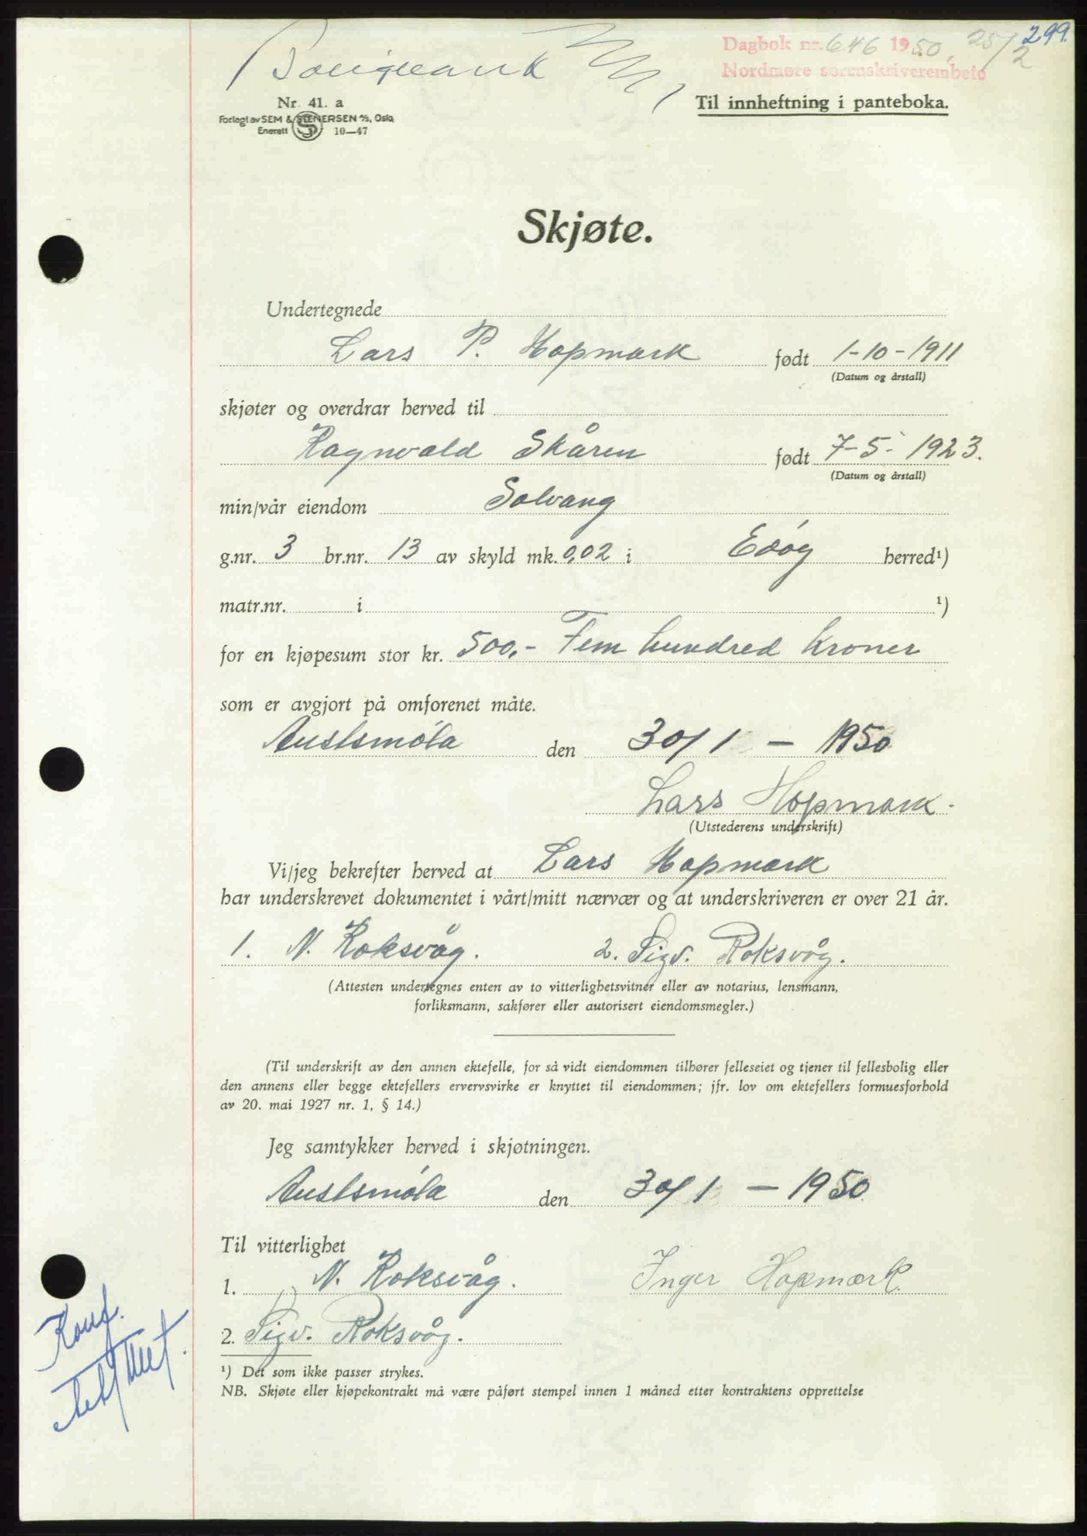 299.
Dagbok nr. 646 1950. 25/2
Nordmøre sorenskriverembete
Til innheftning i panteboka.
Nr. 41. a
Forlagt av SEM & STENERSEN A/S, Oslo
Enerett S 10—47
Skjøte.
Undertegnede
Lars P. Hopmark født 1-10-1911
(Datum og årstall)
skjøter og overdrar herved til
Ragnvald Skåren født 7-5-1923.
(Datum og årstall)
min/vår eiendom Solvang
g.nr. 3 br.nr. 13 av skyld mk. 0,02 i Edøy herred¹)
matr.nr. i ¹)
for en kjøpesum stor kr. 500,- Fem hundred kroner
som er avgjort på omforenet måte.
Austsmøla den 30/1 - 1950
Lars Hopmark.
(Utstederens underskrift)
Vi/jeg bekrefter herved at Lars Hopmark
har underskrevet dokumentet i vårt/mitt nærvær og at underskriveren er over 21 år.
1. N. Roksvåg. 2. Sigv. Roksvåg.
(Attesten undertegnes enten av to vitterlighetsvitner eller av notarius, lensmann,
forliksmann, sakfører eller autorisert eiendomsmegler.)
(Til underskrift av den annen ektefelle, for så vidt eiendommen tilhører felleseiet og tjener til fellesbolig eller
den annens eller begge ektefellers ervervsvirke er knyttet til eiendommen; jfr. lov om ektefellers formuesforhold
av 20. mai 1927 nr. 1, § 14.)
Jeg samtykker herved i skjøtningen.
Austsmøla den 30/1 - 1950
Til vitterlighet
1. N. Roksvåg. Inger Hopmark.
2. Sigv. Roksvåg.
¹) Det som ikke passer strykes.
NB. Skjøte eller kjøpekontrakt må være påført stempel innen 1 måned etter kontraktens opprettelse
Konf.